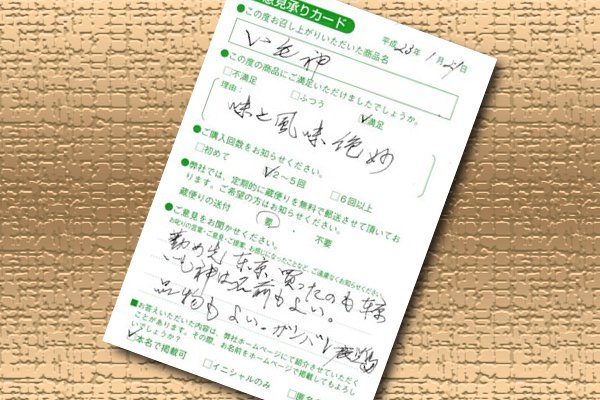 意見承りカード
平成23年1月29日
●この度お召し上がりいただいた商品名
いも神
●この度の商品にご満足いただけましたでしょうか。
□不満足 □ふつう ☑満足
理由：
味と風味絶妙
●ご購入回数をお知らせください。
□初めて ☑2～5回 □6回以上
●弊社では、定期的に蔵便りを無料で郵送させて頂いてお
ります。ご希望の方はお知らせください。
蔵便りの送付 要 ・ 不要
●ご意見をお聞かせください。
お叱りの言葉・ご意見・ご提案、お感じになったことなど、ご遠慮なくお知らせください。
勤め先東京、買ったのも東京
いも神は名前もよい。
品物もよい。ガンバレ鹿児島
■お答えいただいた内容は、弊社ホームページにて紹介させていただく
ことがあります。その際、お名前をホームページで掲載してもよろし
いでしょうか？
☑本名で掲載可 □イニシャルのみ